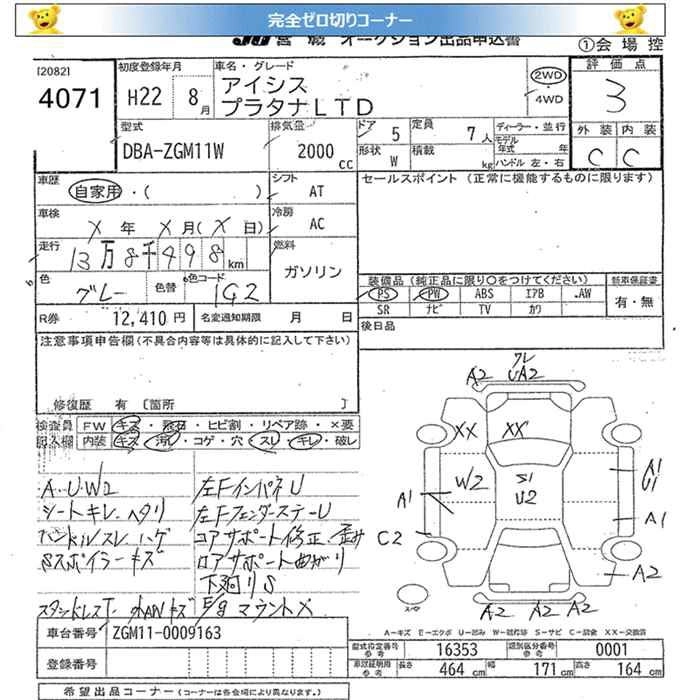 完全ゼロ切りコーナー
JU宮城 オークション出品申込書 ①会場控
[2082]
4071
初度登録年月
H22 8月
車名・グレード
アイシス
プラタナLTD
2WD
・4WD
評価点
3
外装 内装
C C
型式
DBA-ZGM11W
排気量
2000 cc
ドア 5
定員 7人
形状 W
積載 kg
ディーラー・並行
モデル年式 年
ハンドル 左・右
車歴
自家用・( )
シフト
AT
車検
X年 X月(X日)
冷房
AC
走行
13万8千498km
燃料
ガソリン
色
グレー
色替
色コード
1G2
R券 12,410円
名変通知期限 月 日
セールスポイント (正常に機能するものに限ります)
装備品 (純正品に限り○をつけてください)
PS PW ABS エアB AW
SR ナビ TV カワ
新車保証書
有・無
後日品
注意事項申告欄(不具合内容等は具体的に記入して下さい)
修復歴 有 [箇所 ]
検査員記入欄
FW キズ・飛石・ヒビ割・リペア跡・×要
内装 キズ・汚れ・コゲ・穴・スレ・キレ・破レ
A.U.W2
シートキレ、ヘタリ
ハンドルスレ、ハゲ
Sスポイラーキズ
左FインパネU
左FフェンダーステーU
コアサポート修正、歪み
ロアサポート曲がり
下廻りS
Egマウント×
クレ
A2 UA2
XX XX
W2
S1
U2
A1
C2
A1
U1
A1
A2
A2 A2 A2
A-キズ E-エクボ U-凹み W-補修跡 S-サビ C-腐食 XX-交換済
車台番号 ZGM11-0009163
登録番号
型式指定番号 参考 16353
類別区分番号 参考 0001
車庫証明用 参考
長さ 464 cm
幅 171 cm
高さ 164 cm
希望出品コーナー (コーナーは各会場により異なります。)